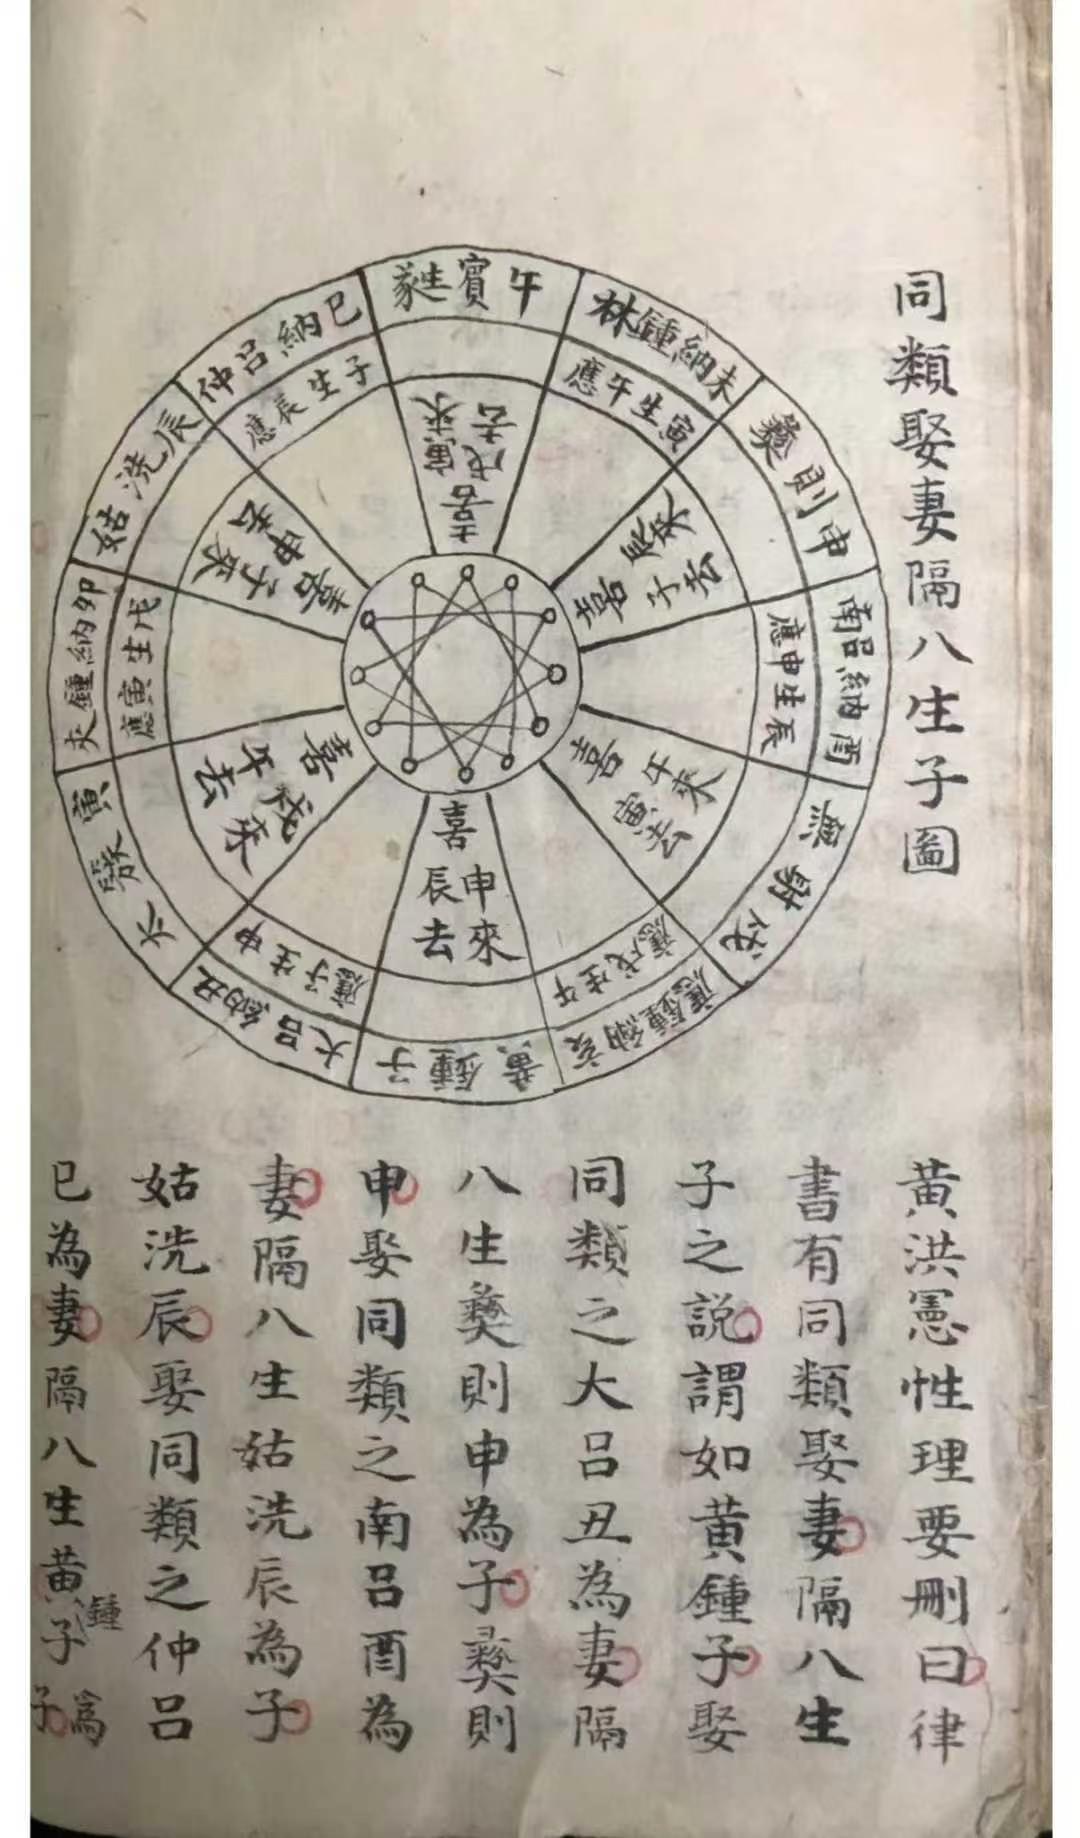 同類娶妻隔八生子圖
蕤賓午
林鍾納未
彝則申
南呂納酉
無射戌
應鍾納亥
黃鍾子
大呂納丑
寅
夾鍾納卯
姑洗辰
仲呂納巳
應午生寅
應申生辰
應戌生午
應子生申
應寅生戌
應辰生子
喜寅來戌去
喜辰來子去
喜午來寅去
喜申來辰去
喜戌來午去
喜子來申去
黃洪憲性理要刪曰律
書有同類娶妻隔八生
子之説謂如黃鍾子娶
同類之大呂丑為妻隔
八生彝則申為子彝則
申娶同類之南呂酉為
妻隔八生姑洗辰為子
姑洗辰娶同類之仲呂
巳為妻隔八生黃鍾子為子